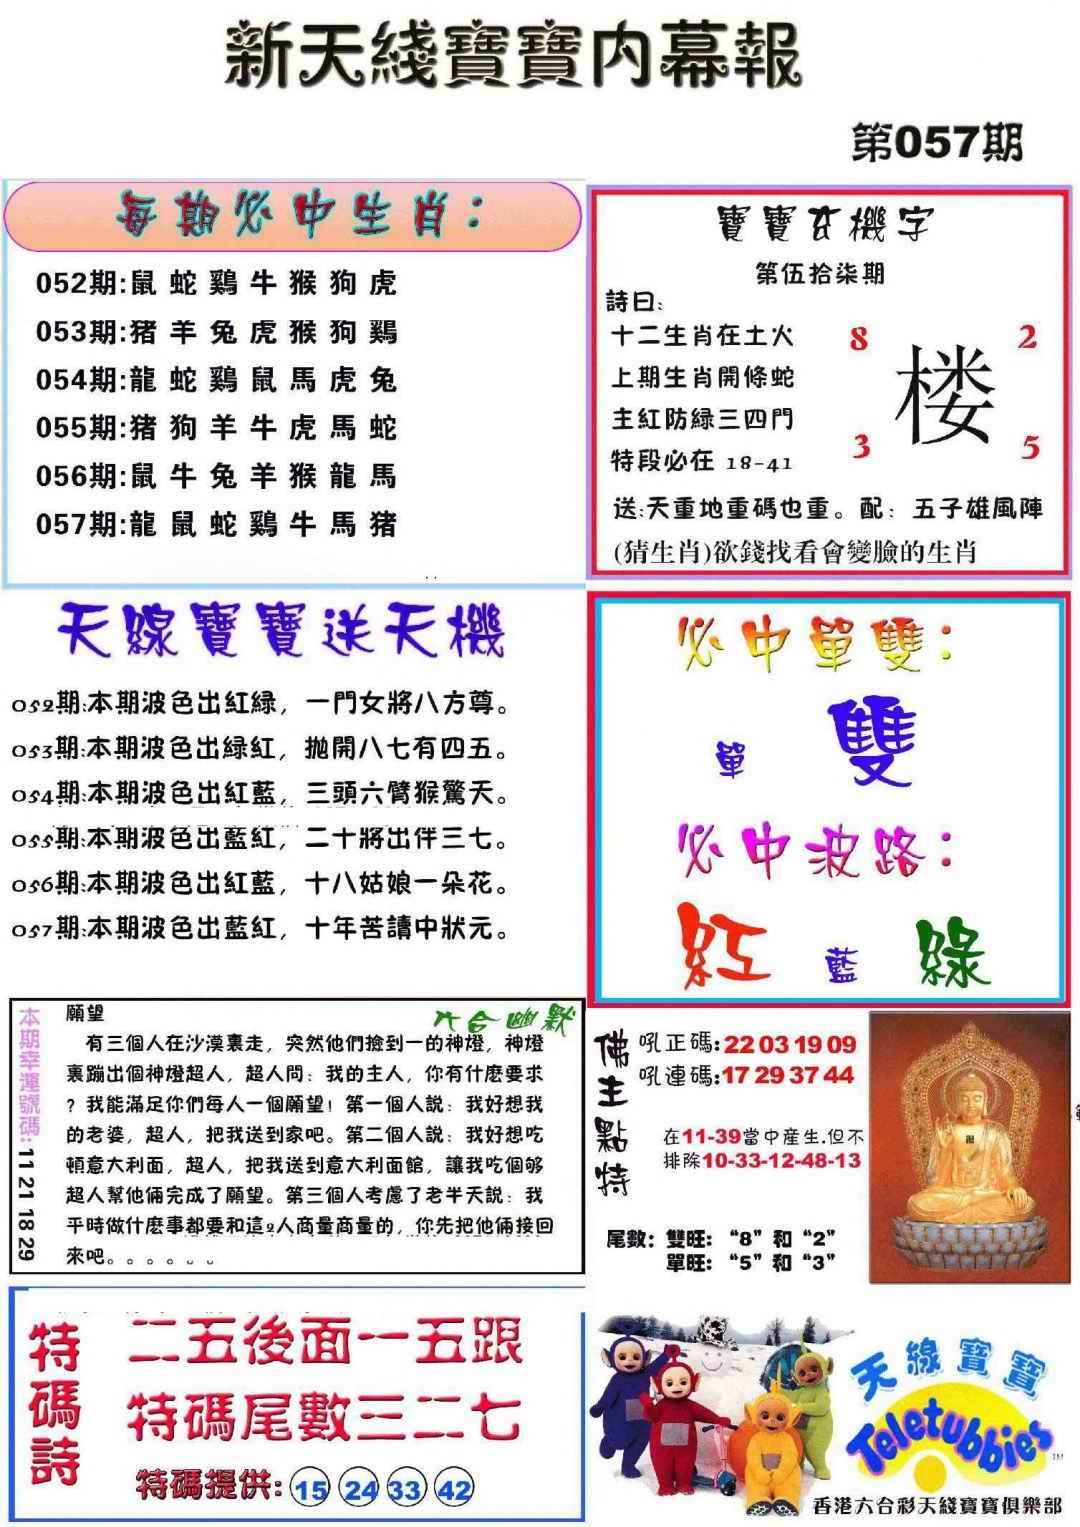 新天綫寶寶内幕報
第057期
每期必中生肖：
052期:鼠 蛇 鷄 牛 猴 狗 虎
053期:猪 羊 兔 虎 猴 狗 鷄
054期:龍 蛇 鷄 鼠 馬 虎 兔
055期:猪 狗 羊 牛 虎 馬 蛇
056期:鼠 牛 兔 羊 猴 龍 馬
057期:龍 鼠 蛇 鷄 牛 馬 猪
寶寶玄機字
第伍拾柒期
詩曰:
十二生肖在土火
上期生肖開條蛇
主紅防緑三四門
特段必在 18-41
8 2
楼
3 5
送:天重地重碼也重。配： 五子雄風陣
(猜生肖)欲錢找看會變臉的生肖
天線寶寶送天機
052期:本期波色出紅緑，一門女將八方尊。
053期:本期波色出緑紅，抛開八七有四五。
054期:本期波色出紅藍，三頭六臂猴驚天。
055期:本期波色出藍紅，二十將出伴三七。
056期:本期波色出紅藍，十八姑娘一朵花。
057期:本期波色出藍紅，十年苦讀中狀元。
必中單雙：
單 雙
必中波路：
紅 藍 綠
本期幸運號碼: 11 21 18 29
六合幽默
願望
有三個人在沙漠裏走，突然他們撿到一的神燈，神燈
裏蹦出個神燈超人，超人問：我的主人，你有什麽要求
？我能滿足你們每人一個願望！第一個人説：我好想我
的老婆，超人，把我送到家吧。第二個人説：我好想吃
頓意大利面，超人，把我送到意大利面館，讓我吃個够
超人幫他倆完成了願望。第三個人考慮了老半天説：我
平時做什麽事都要和這2人商量商量的，你先把他倆接回
來吧。。。。。。
佛主點特
吼正碼:22 03 19 09
吼連碼:17 29 37 44
在11-39當中産生.但不
排除10-33-12-48-13
尾數：雙旺：“8”和“2”
單旺：“5”和“3”
特碼詩
二五後面一五跟
特碼尾數三二七
特碼提供: 15 24 33 42
天線寶寶
Teletubbies
TM
香港六合彩天綫寶寶俱樂部